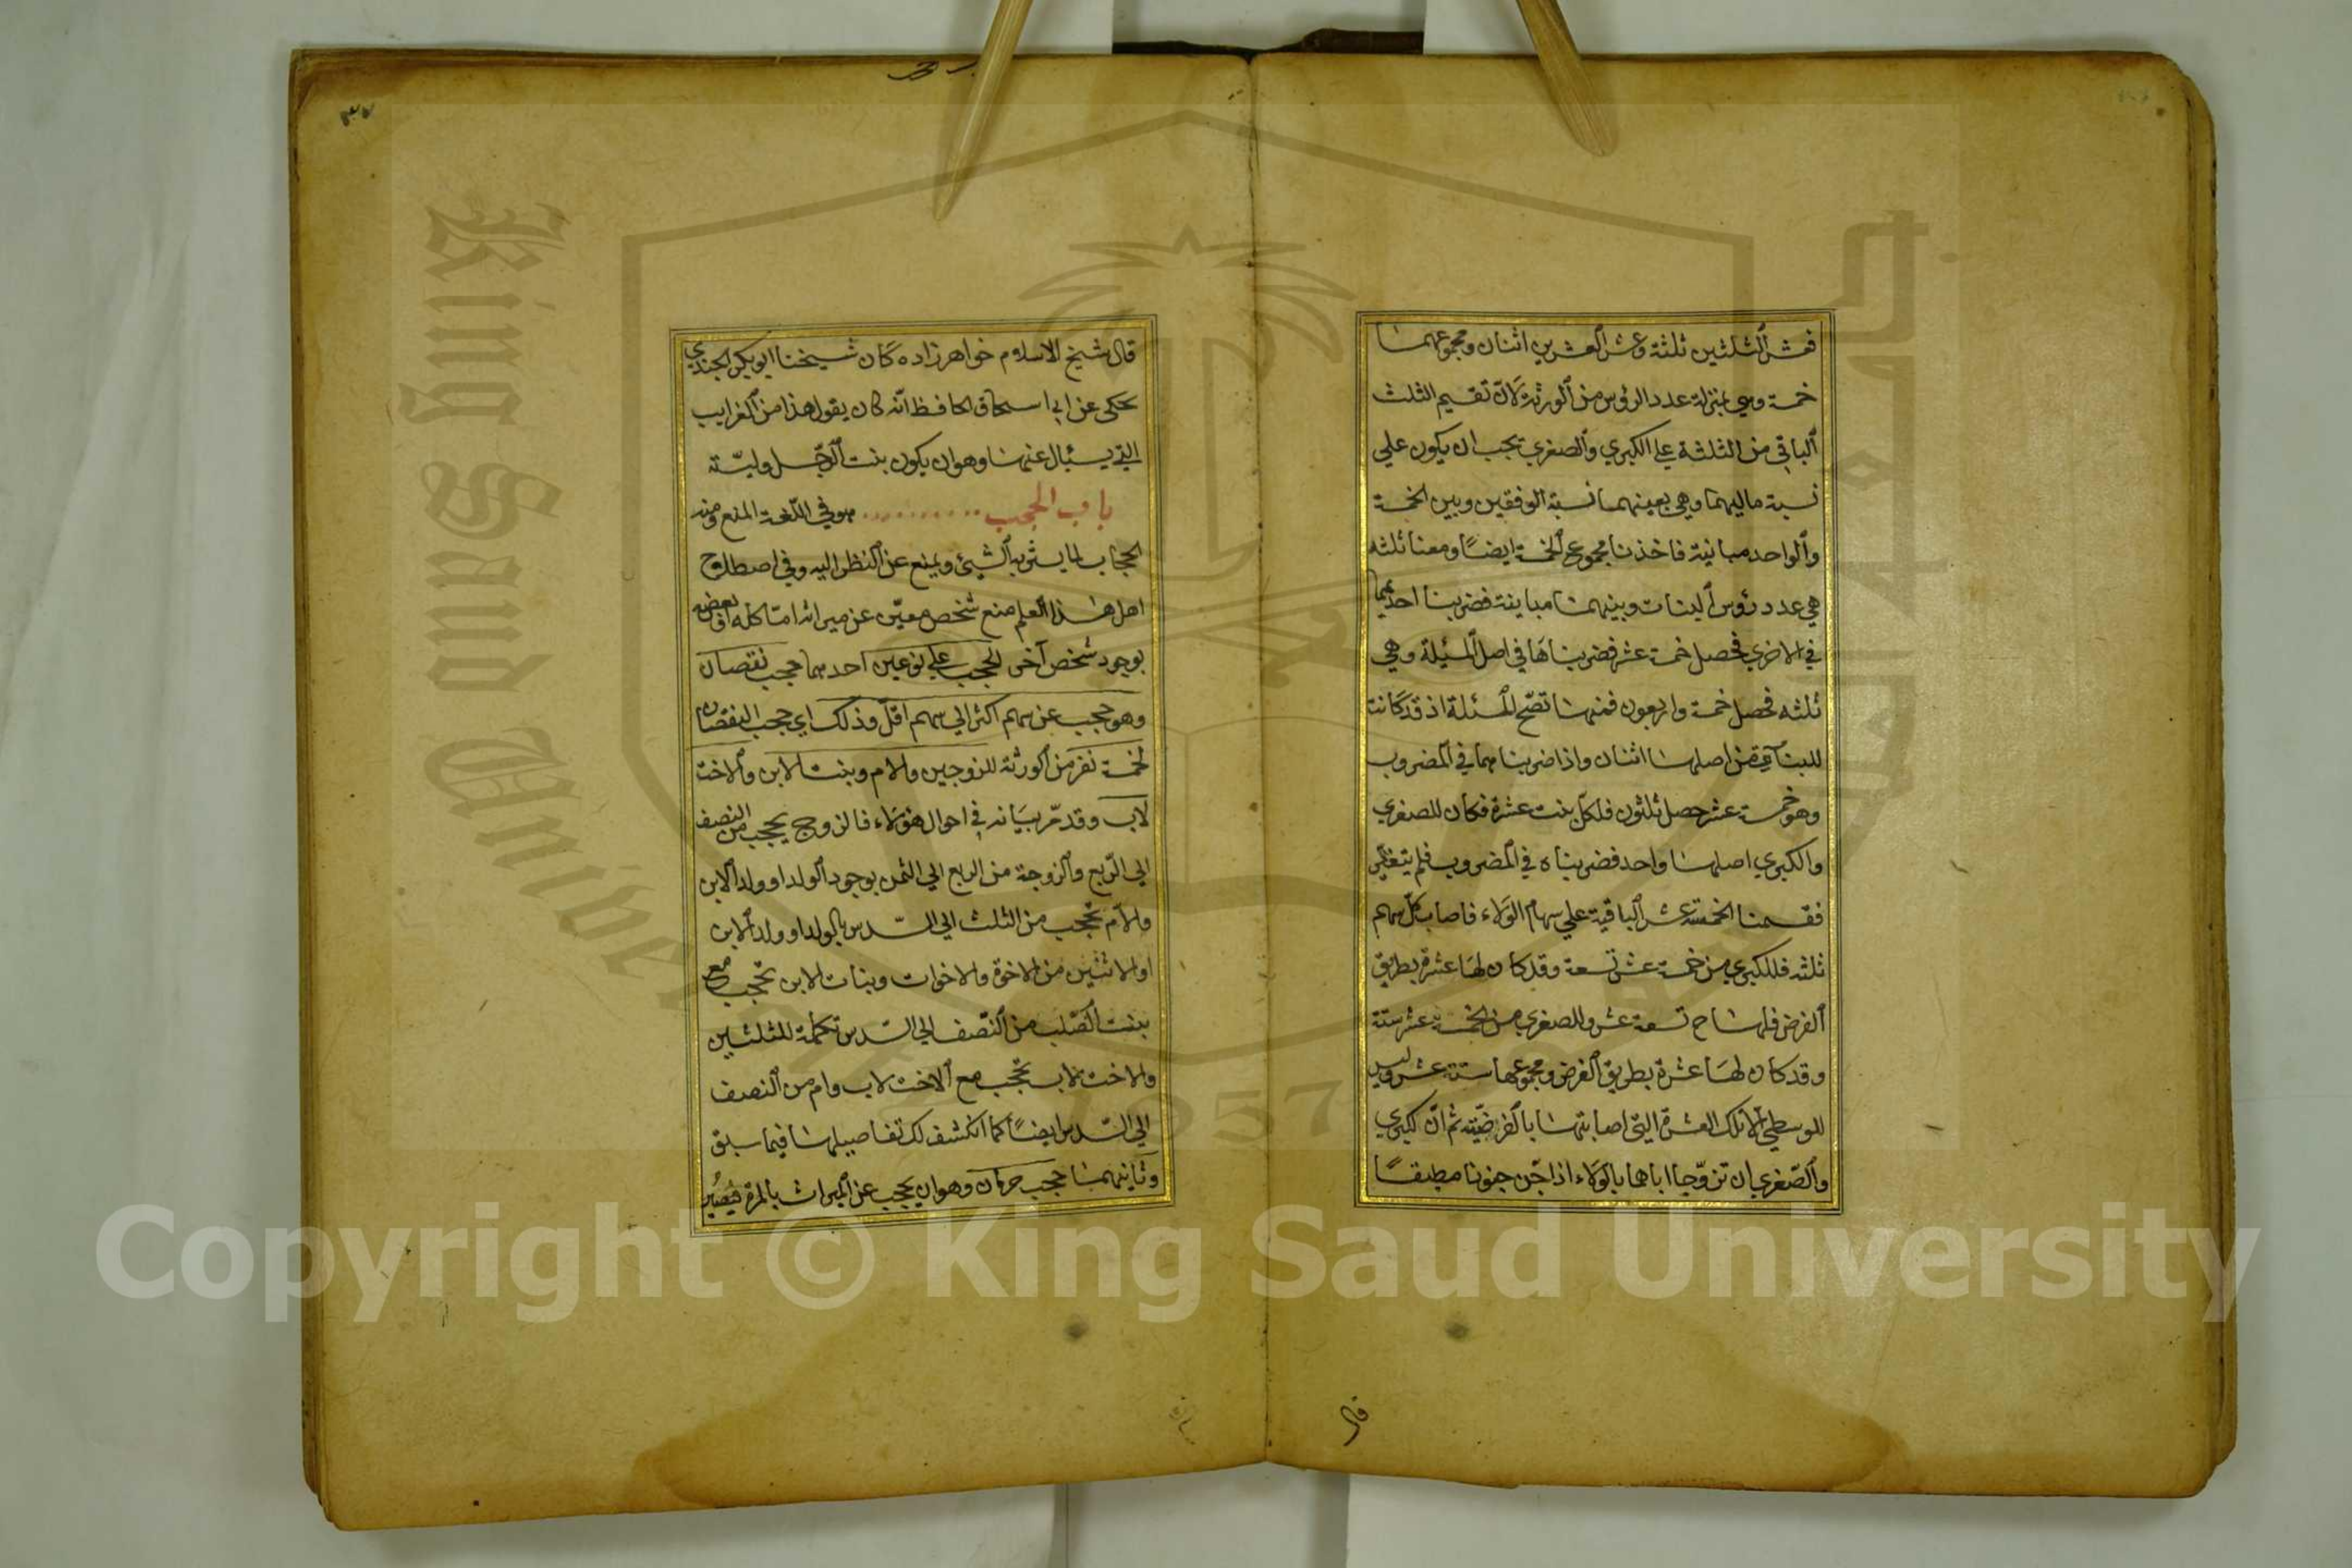 فعشر الثلثين ثلثة وعشر العشرين اثنان ومجموعهما
خمسة وهي بمنزلة عدد الرؤس من الورثة لان تقسيم الثلث
الباقي من الثلثة على الكبري والصغري يجب ان يكون علي
نسبة ماليهما وهي بعينهما نسبة الوفقين وبين الخمسة
والواحد مباينة فاخذنا مجموع الخمسة ايضًا ومعنا ثلثه
هي عدد رؤس البنات وبينهما مباينة فضربنا احديهما
في الاخري فحصل خمسة عشر فضربناها في اصل المسئلة وهي
ثلثه فحصل خمسة واربعون فمنها تصّح المسئلة اذ قد كانت
للبنات من اصلها اثنان واذا ضربنا هما في المضروب
وهو خمسة عشر حصل ثلثون فلكلّ بنت عشرة فكان للصغري
والكبري اصلها واحد فضربناه في المضروب فلم يتغيّر
فقسمنا الخمسة عشر الباقية علي سهام الولاء فاصاب كلّ سهم
ثلثه فللكبري من خمسة عشر تسعة وقد كان لها عشرة بطريق
الفرض فلها ح تسعة عشر وللصغري من الخمسة عشر ستة
وقد كان لها عشرة بطريق الفرض ومجموعها ستة عشر وليس
للوسطي الا تلك العشرة التي اصابتها بالفرضيّة ثم انّ كبري
والصّغري ان تزوّجا اباها بالولاء اذا جنّ جنونا مطبقًا
قال
٣٧
قال شيخ الاسلام خواهرزاده كان شيخنا ابو بكر الجندي
يحكي عن ابي اسحاق الحافظ انّه كان يقول هذا من الغرايب
التي يسئال عنها وهو ان يكون بنت الرّجل وليّته
باب الحجب هو في اللّغة المنع ومنه
الحجاب لما يستر به الشيئ ويمنع عن النظر اليه وفي اصطلاح
اهل هذا العلم منع شخص معيّن عن ميراثه امّا كله او بعضه
بوجود شخص آخر الحجب علي نوعين احدهما حجب نقصان
وهو حجب عن سهم اكثر الي سهم اقلّ وذلك اي حجب النقصان
لخمسة نفر من الورثة للزوجين والام وبنت الابن والاخت
لاب وقد مرّ بيانه في احوال هؤلاء فالزوج يحجب من النصف
الي الرّبع والزوجة من الربع الي الثمن بوجود الولد او ولد الابن
والامّ تحجب من الثلث الي السّدس بالولد او ولد الابن
او الاثنين من الاخوة والاخوات وبنات الابن تحجب مع
بنت الصّلب من النّصف الي السّدس تكملة للثلثين
والاخت لاب تحجب مع الاخت لاب وام من النصف
الي السّدس ايضًا كما انكشف لك تفاصيلها فيما سبق
وثانيهما حجب حرمان وهو ان يحجب عن الميراث بالمرة فيصير
King Saud University
1957
Copyright © King Saud University